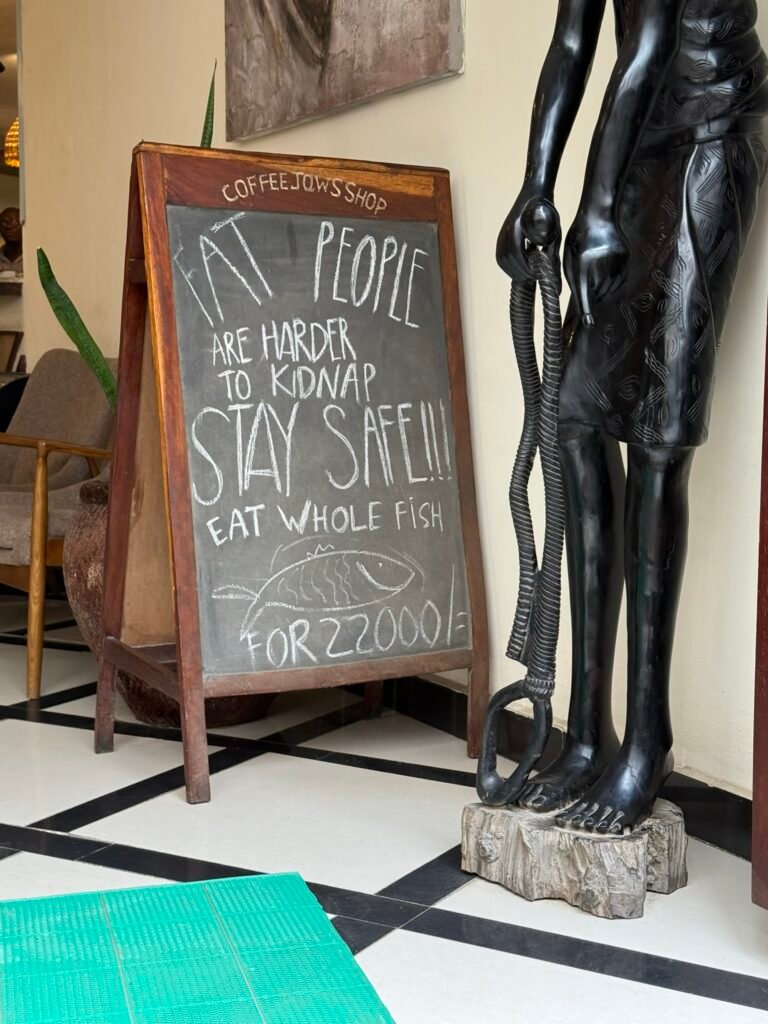 COFFEE JAWS SHOP
FAT PEOPLE
ARE HARDER
TO KIDNAP
STAY SAFE!!!
EAT WHOLE FISH
FOR 22000/=